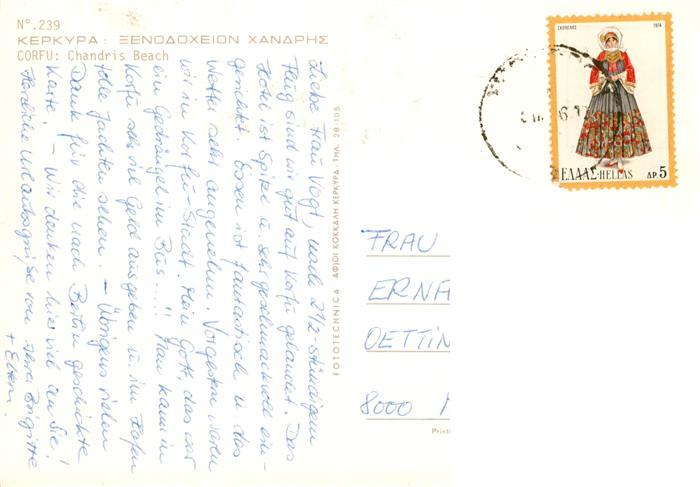 N°. 239
ΚΕΡΚΥΡΑ: ΞΕΝΟΔΟΧΕΙΟΝ ΧΑΝΔΡΗΣ
CORFU: Chandris Beach
Liebe Frau Vogt, nach 2 1/2-stündigem
Flug sind wir gut auf Korfu gelandet. Das
Hotel ist Spitze u. sehr geschmackvoll ein-
gerichtet. Essen ist fantastisch u. das
Wetter sehr angenehm. Vorgestern waren
wir in Korfu-Stadt. Mein Gott, das war
ein Gedrängel im Bus...!! Man kann in
Korfu sehr viel Geld ausgeben u. im Hafen
tolle Jachten sehen. – Übrigens vielen
Dank für die nach Berlin geschickte
Karte. – Wir denken hier viel an Sie!
Herzliche Urlaubsgrüße von Ihrer Brigitte
+ Eltern.
FOTOTECHNICA ΑΦΙΟΙ ΚΟΚΚΑΛΗ ΚΕΡΚΥΡΑ ΤΗΛ. 28.105
ΣΚΟΠΕΛΟΣ 1974
ΕΛΛΑΣ-HELLAS ΔΡ. 5
FRAU
ERNA
OETTIN
8000
Printe